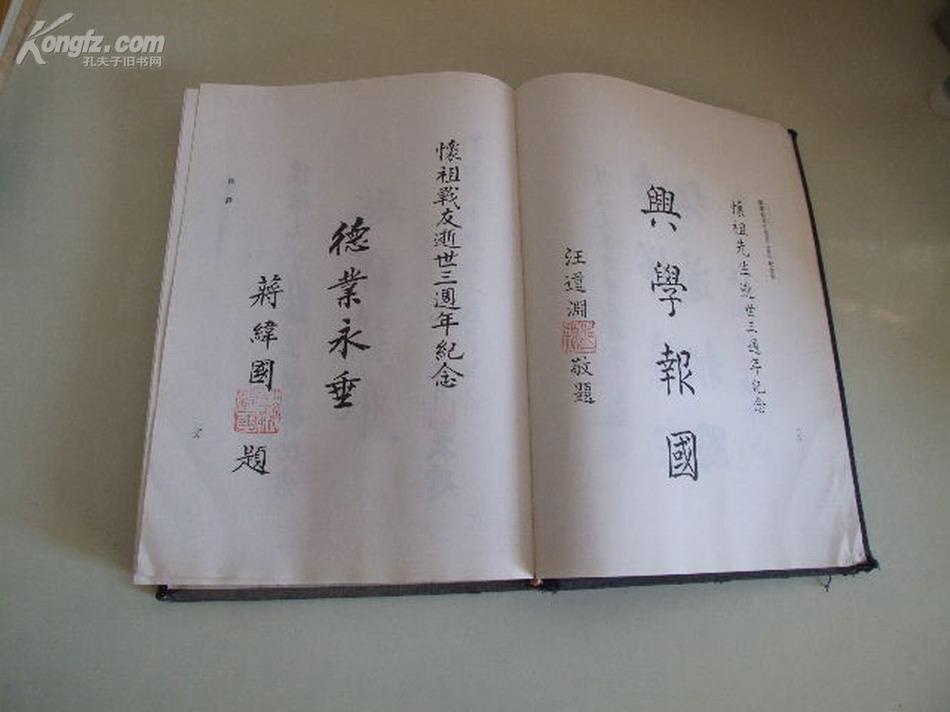 Kongfz.com
孔夫子旧书网
懷祖先生逝世三週年紀念
興學報國
汪道淵
敬題
懷祖戰友逝世三週年紀念
德業永垂
蔣緯國
題